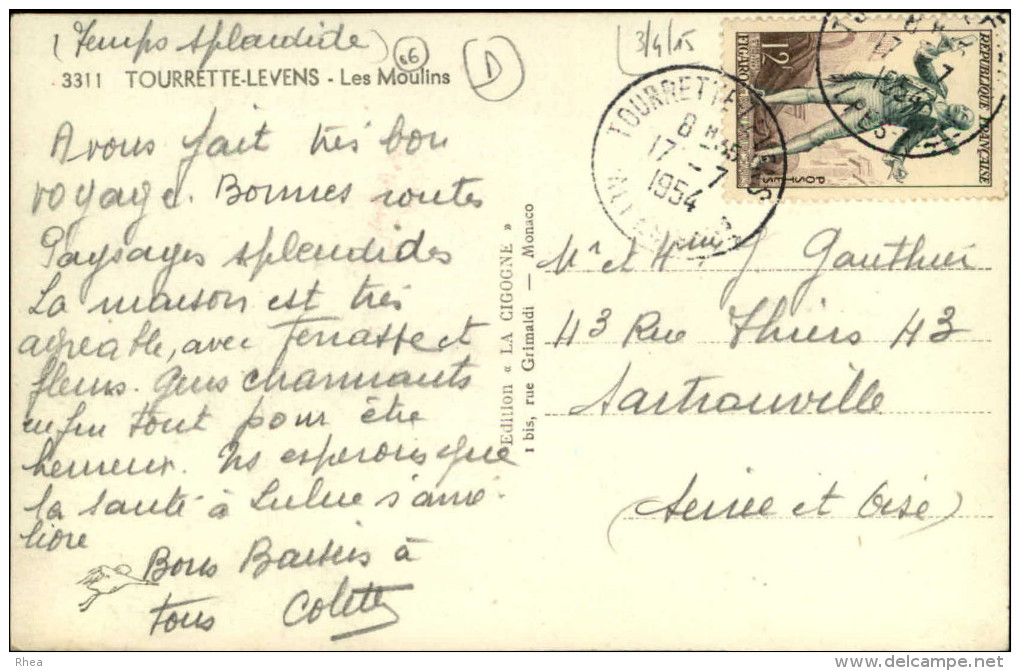 (Temps splendide)
66
D
3/4/15
3311 TOURRETTE-LEVENS - Les Moulins
Avons fait très bon
voyage. Bonnes routes
Paysages splendides
La maison est très
agréable, avec Terrasse et
fleurs. Gens charmants
enfin tout pour être
heureux. Ns esperons que
la santé à Lulue s'amé-
liore
Bons Baisers à
tous Colette
Edition « LA CIGOGNE »
1 bis, rue Grimaldi — Monaco
TOURRETTE LEVENS
8 H 35
17 - 7
1954
ALPES
17
7
1954
REPUBLIQUE FRANÇAISE
POSTES
12F
FIGARO
Mr et Mme J. Gauthier
43 Rue Thiers 43
Sartrouville
(Seine et Oise)
Rhea
© delcampe.net